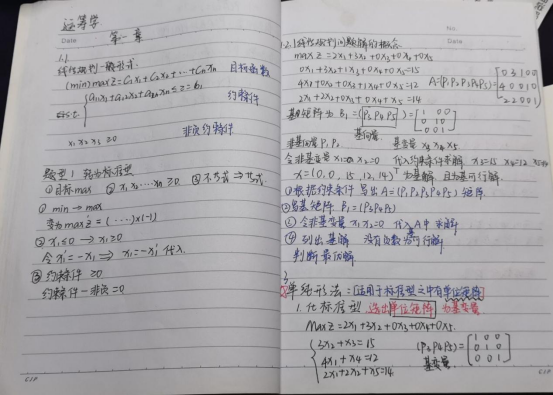 运筹学
Date 第一章
1.1
线性规划一般形式:
(min) max Z = C₁X₁ + C₂X₂ + ... + CnXn 目标函数
a₁₁X₁ + a₁₂X₂ + a₁nXn ≤ = b₁ 约束条件
s.t.
X₁ X₂ X₃ ≥ 0 非负约束条件
题型1 化为标准型
①目标max ② X₁ X₂ ... Xn ≥ 0 ③ 不等式 ⇒ 等式
① min → max
变为 max z' = (····)×(-1)
② X₁ ≤ 0 → X₁ ≥ 0
令 X₁' = -X₁ ⇒ X₁ = -X₁' 代入
③ 约束条件 ≥ 0
约束条件 - 非负 = 0
No.
Date
1.2.1 线性规划问题解的概念
max Z = 2X₁ + 3X₂ + 0X₃ + 0X₄ + 0X₅
0X₁ + 3X₂ + 1X₃ + 0X₄ + 0X₅ = 15
4X₁ + 0X₂ + 0X₃ + 1X₄ + 0X₅ = 12 A = (P₁ P₂ P₃ P₄ P₅)
2X₁ + 2X₂ + 0X₃ + 0X₄ + 1X₅ = 14
0 3 1 0 0
4 0 0 1 0
2 2 0 0 1
基矩阵为 B₁ = (P₃ P₄ P₅)
1 0 0
0 1 0
0 0 1
基向量
非基向量 P₁ P₂ 基变量 X₃ X₄ X₅
令非基变量 X₁=0 X₂=0 代入约束条件求解 X₃=15 X₄=12
X = (0, 0, 15, 12, 14)ᵀ 为基解, 且为基可行解
①根据约束条件 写出 A = (P₁ P₂ P₃ P₄ P₅) 矩阵
②写基矩阵 B₁ = (P₃ P₄ P₅)
③ 令非基变量 X₁ X₂ = 0 代入 A 中 求解
④ 列出基解 没有负数为可行解
判断最优解
2.
单纯形法: 适用于标准型之中有单位矩阵
1. 化标准型 选出单位矩阵 为基变量
Max Z = 2X₁ + 3X₂ + 0X₃ + 0X₄ + 0X₅
3X₂ + X₃ = 15
4X₁ + X₄ = 12 (P₃ P₄ P₅) =
2X₁ + 2X₂ + X₅ = 14 基变量
1 0 0
0 1 0
0 0 1